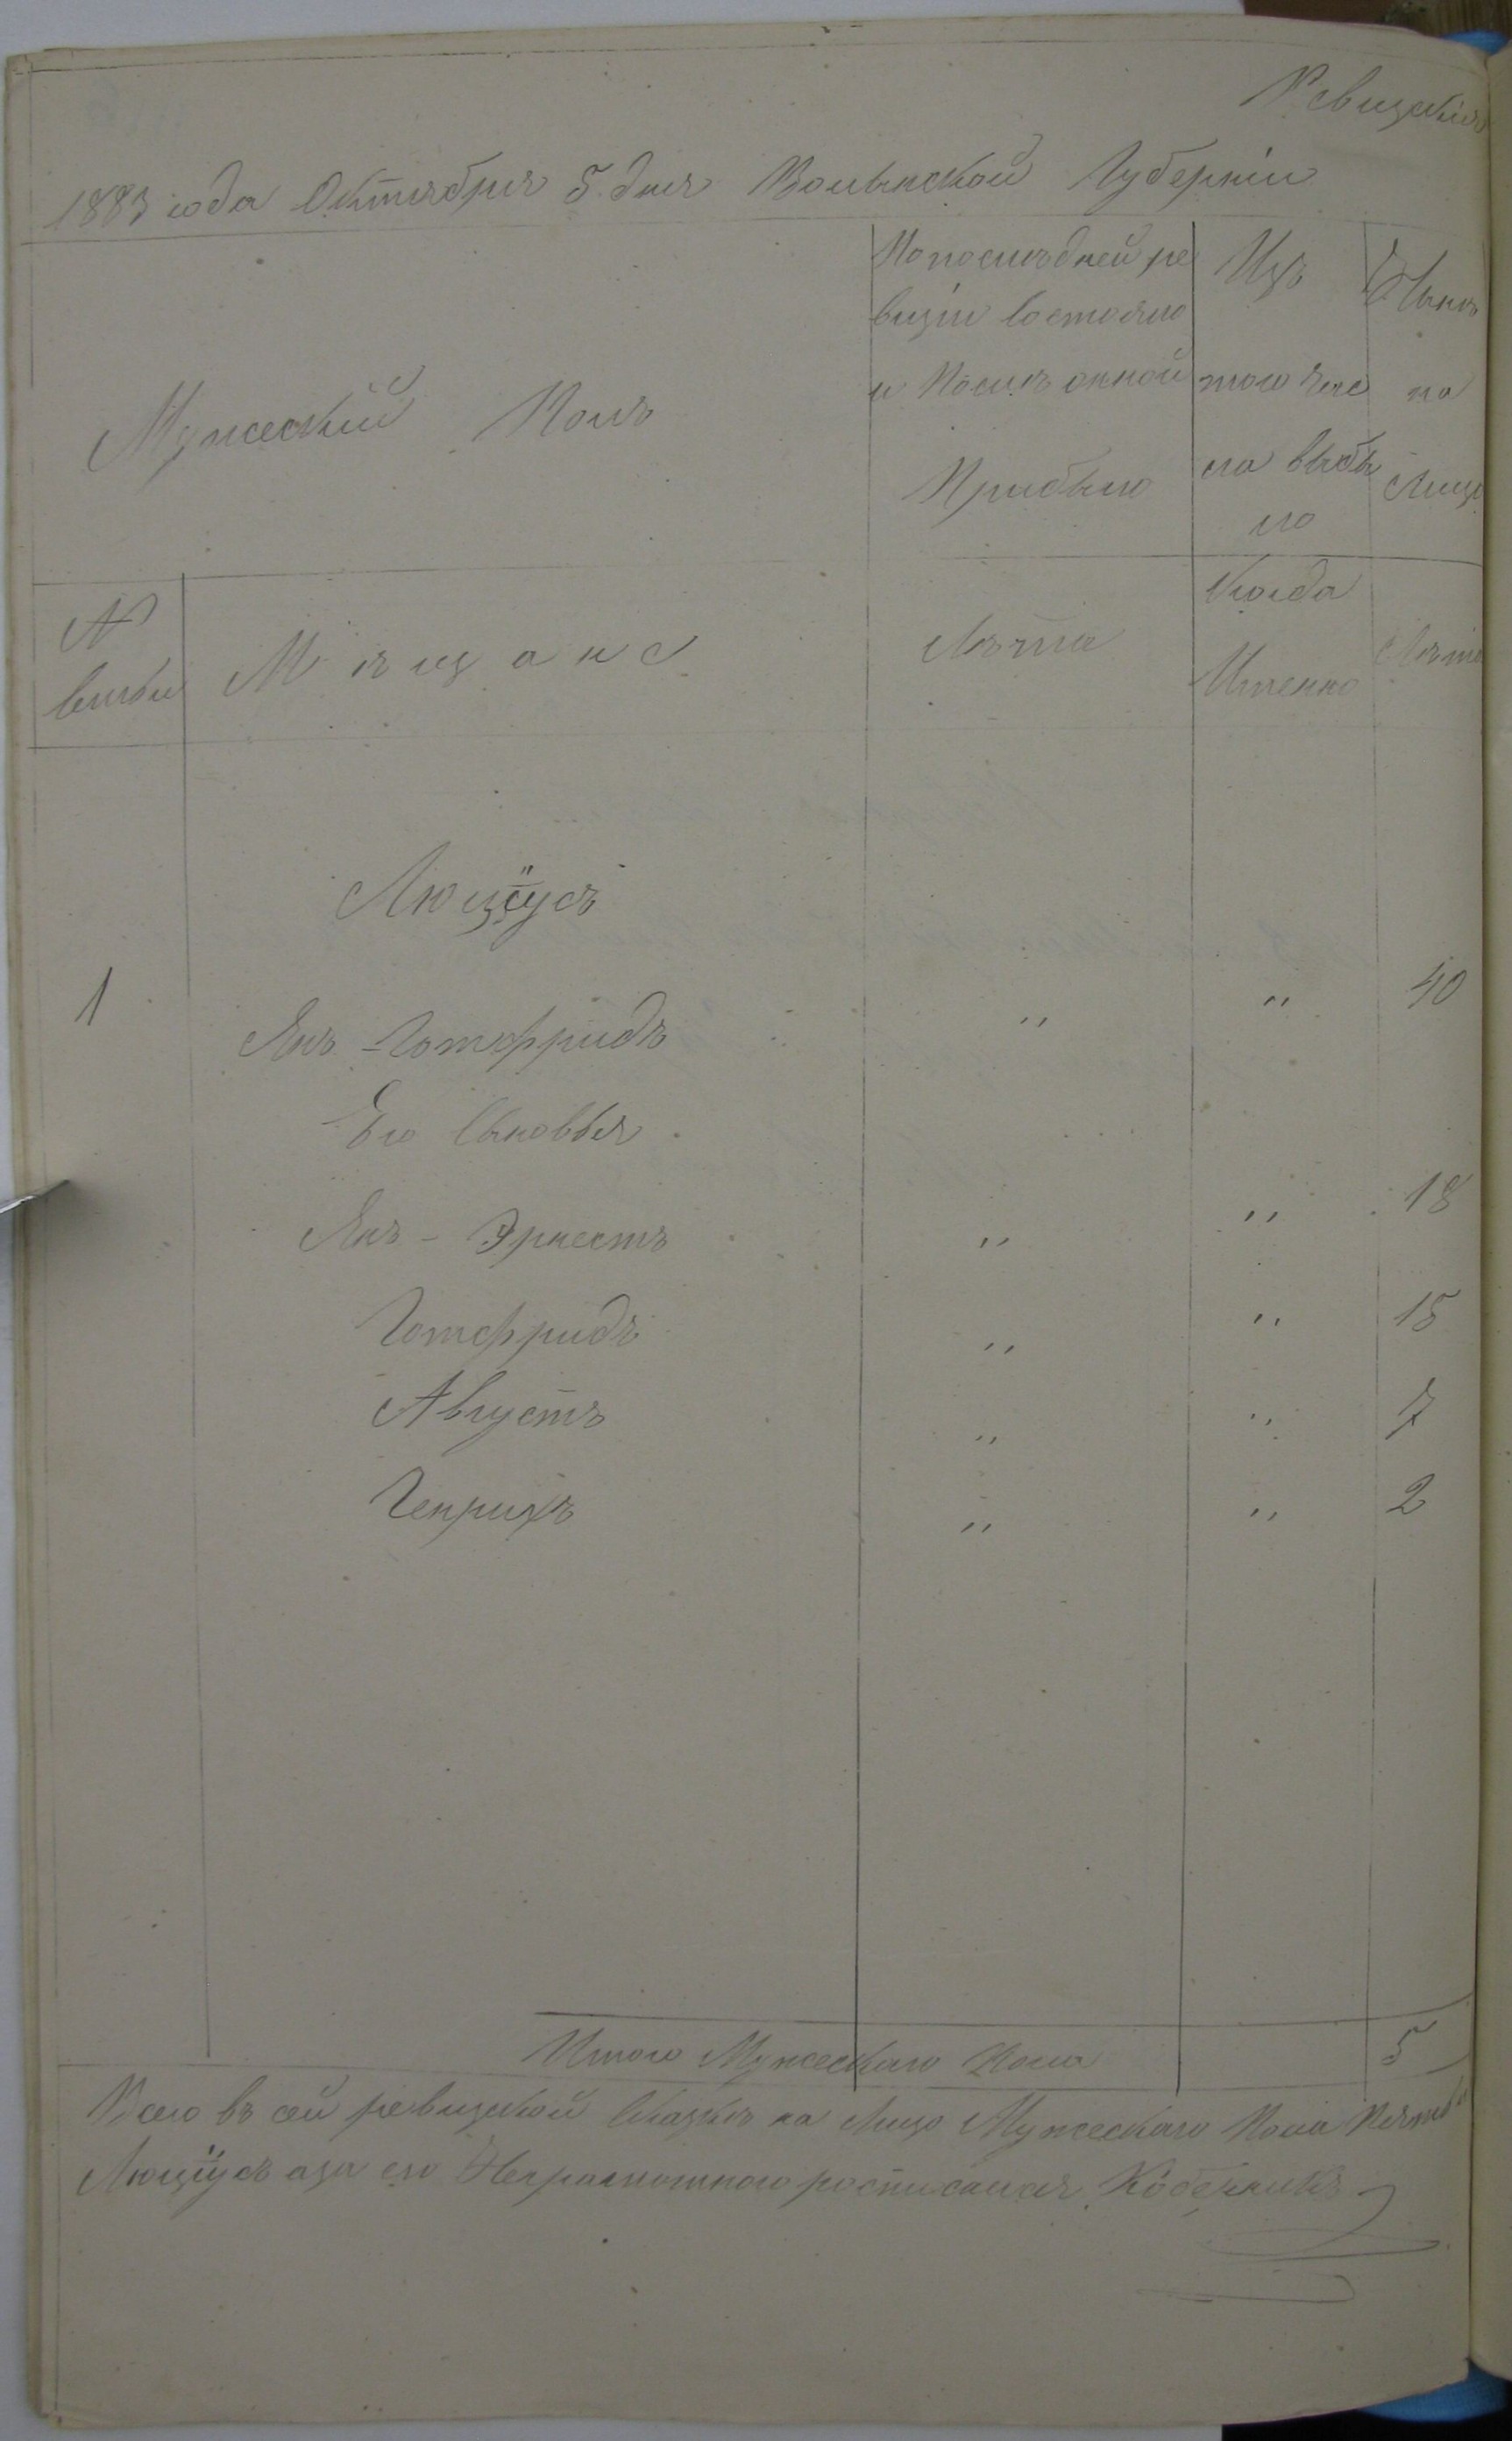 Ревизская
1883 года Октября 5 дня Волынской Губернiи
Мужескiй Полъ
По последней ре
визiи состояло
и После онной
Прибыло
Изъ
того чис
ла выбы
ло
Нынѣ
на
Лицо
№
семьи
Мѣщане
Лѣта
Когда
Именно
Лѣта
Люцiусъ
1 Янъ-Готфридъ " " 40
Его Сыновья
Янъ-Эрнестъ " " 18
Готфридъ " " 15
Августъ " " 7
Генрихъ " " 2
Итого Мужескаго Пола 5
Всего въ сей ревизской Сказкѣ на Лицо Мужескаго Пола Пять
Люцiусъ а за его Неграмотного росписался